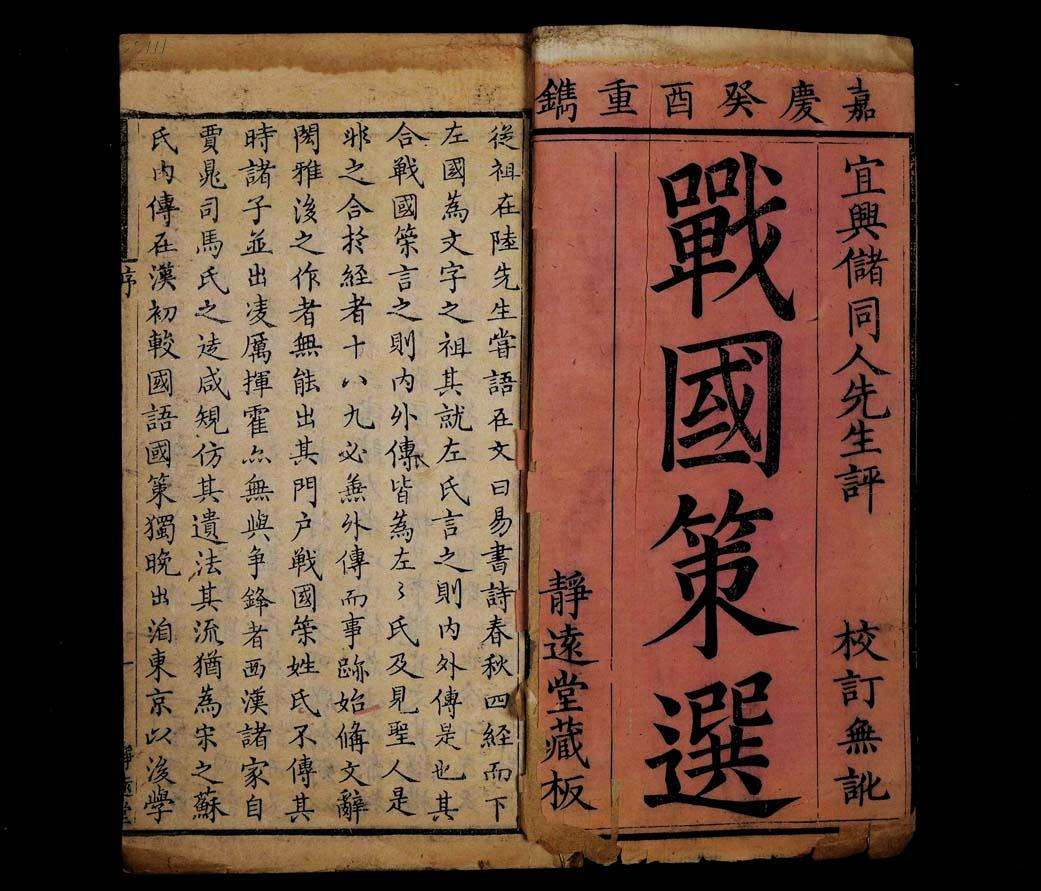 嘉慶癸酉重鐫
宜興儲同人先生評 校訂無訛
戰國策選
靜遠堂藏板
從祖在陸先生嘗語在文曰易書詩春秋四經而下
左國為文字之祖其就左氏言之則内外傳是也其
合戰國策言之則内外傳皆為左〻氏及見聖人是
非之合於經者十八九必無外傳而事跡始俻文辭
閎雅後之作者無能出其門户戰國策姓氏不傳其
時諸子並出凌厲揮霍亦無與争鋒者西漢諸家自
賈晁司馬氏之徒咸規仿其遺法其流猶為宋之蘇
氏内傳在漢初較國語國策獨晚出洎東京以後學
序
一
靜遠堂